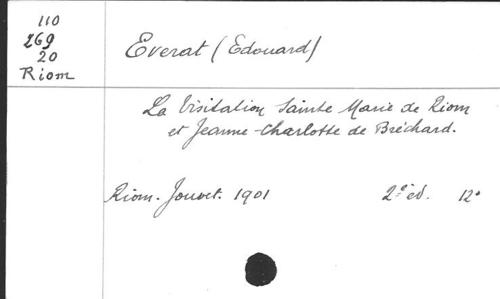 110
269
20
Riom
Everat (Edouard)
La Visitation Sainte Marie de Riom
et Jeanne-Charlotte de Bréchard.
Riom. Jouvet. 1901 2e éd. 12°